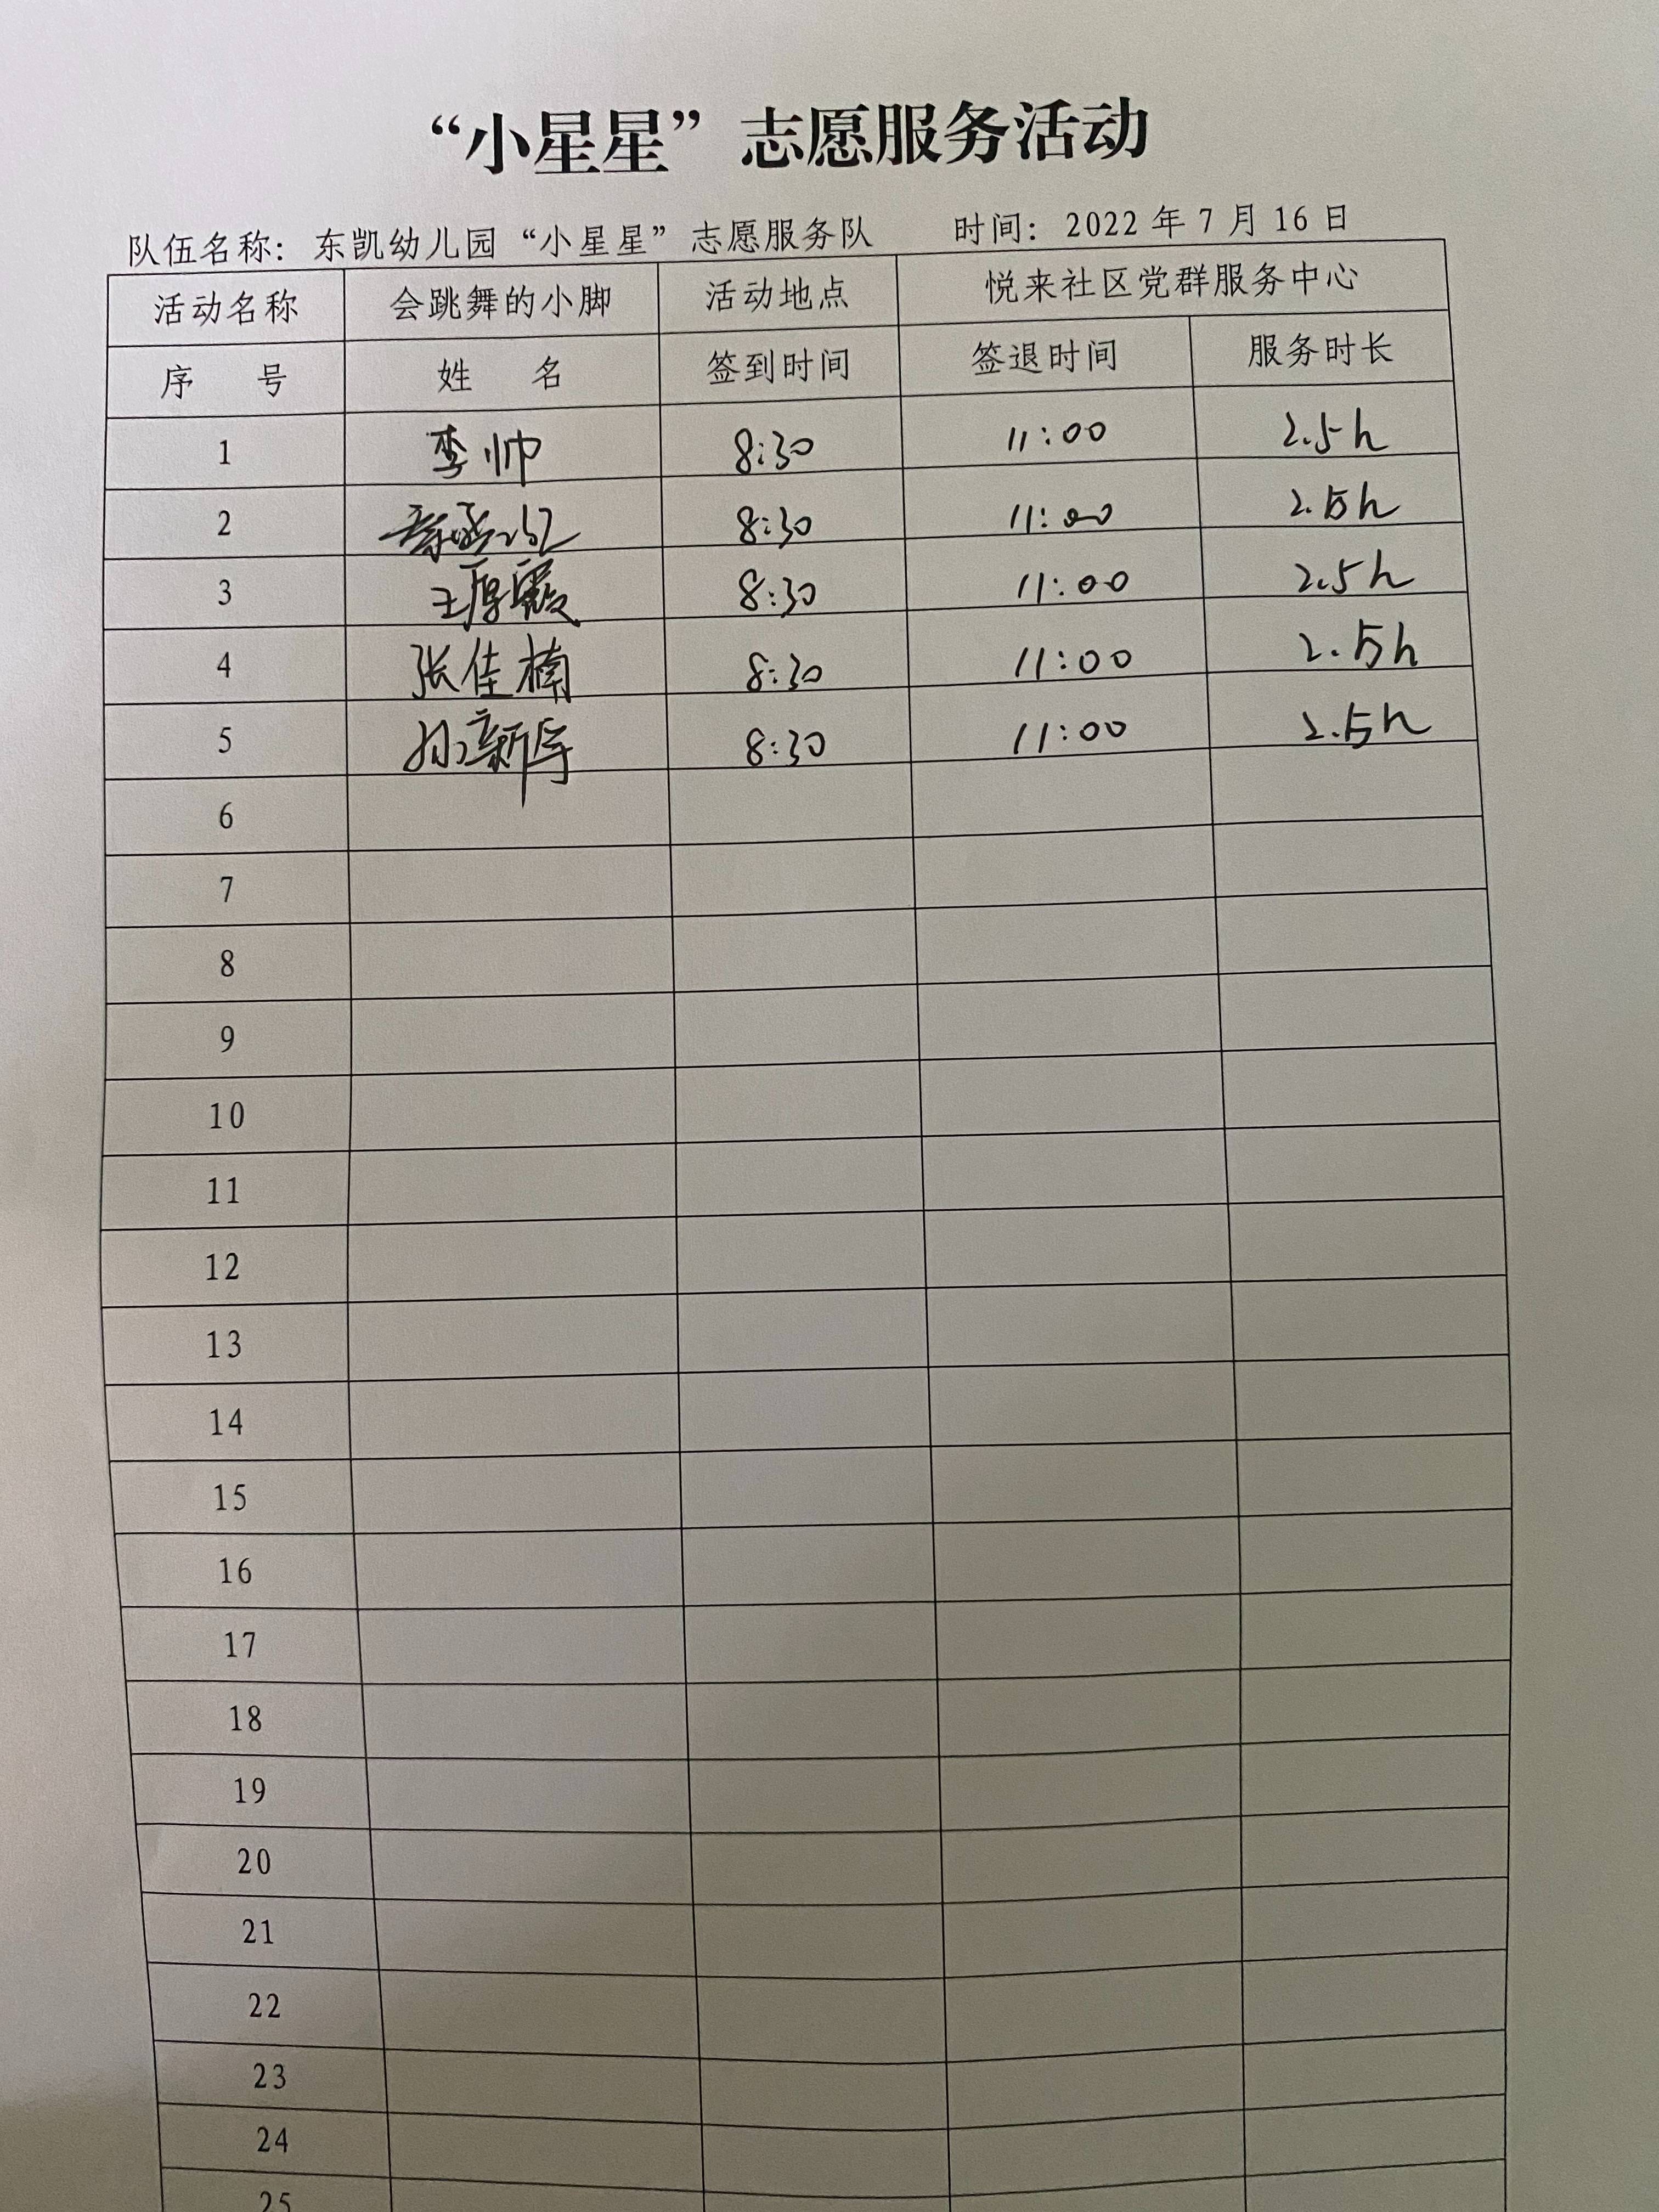 “小星星”志愿服务活动
队伍名称：东凯幼儿园“小星星”志愿服务队 时间：2022年7月16日
活动名称 会跳舞的小脚 活动地点 悦来社区党群服务中心
序 号 姓 名 签到时间 签退时间 服务时长
1 李帅 8:30 11:00 2.5h
2 8:30 11:00 2.5h
3 王厚霞 8:30 11:00 2.5h
4 张佳楠 8:30 11:00 2.5h
5 孙新宇 8:30 11:00 2.5h
6
7
8
9
10
11
12
13
14
15
16
17
18
19
20
21
22
23
24
25